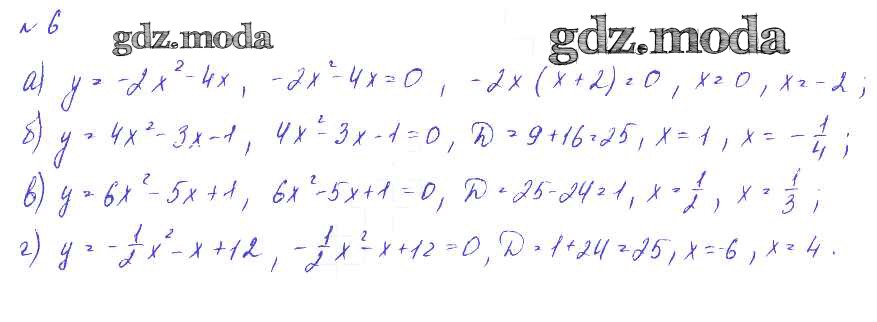 № 6
gdz.moda gdz.moda
а) y = -2x² - 4x, -2x² - 4x = 0, -2x (x + 2) = 0, x = 0, x = -2;
б) y = 4x² - 3x - 1, 4x² - 3x - 1 = 0, D = 9 + 16 = 25, x = 1, x = -1/4;
в) y = 6x² - 5x + 1, 6x² - 5x + 1 = 0, D = 25 - 24 = 1, x = 1/2, x = 1/3;
г) y = -1/2x² - x + 12, -1/2x² - x + 12 = 0, D = 1 + 24 = 25, x = -6, x = 4.